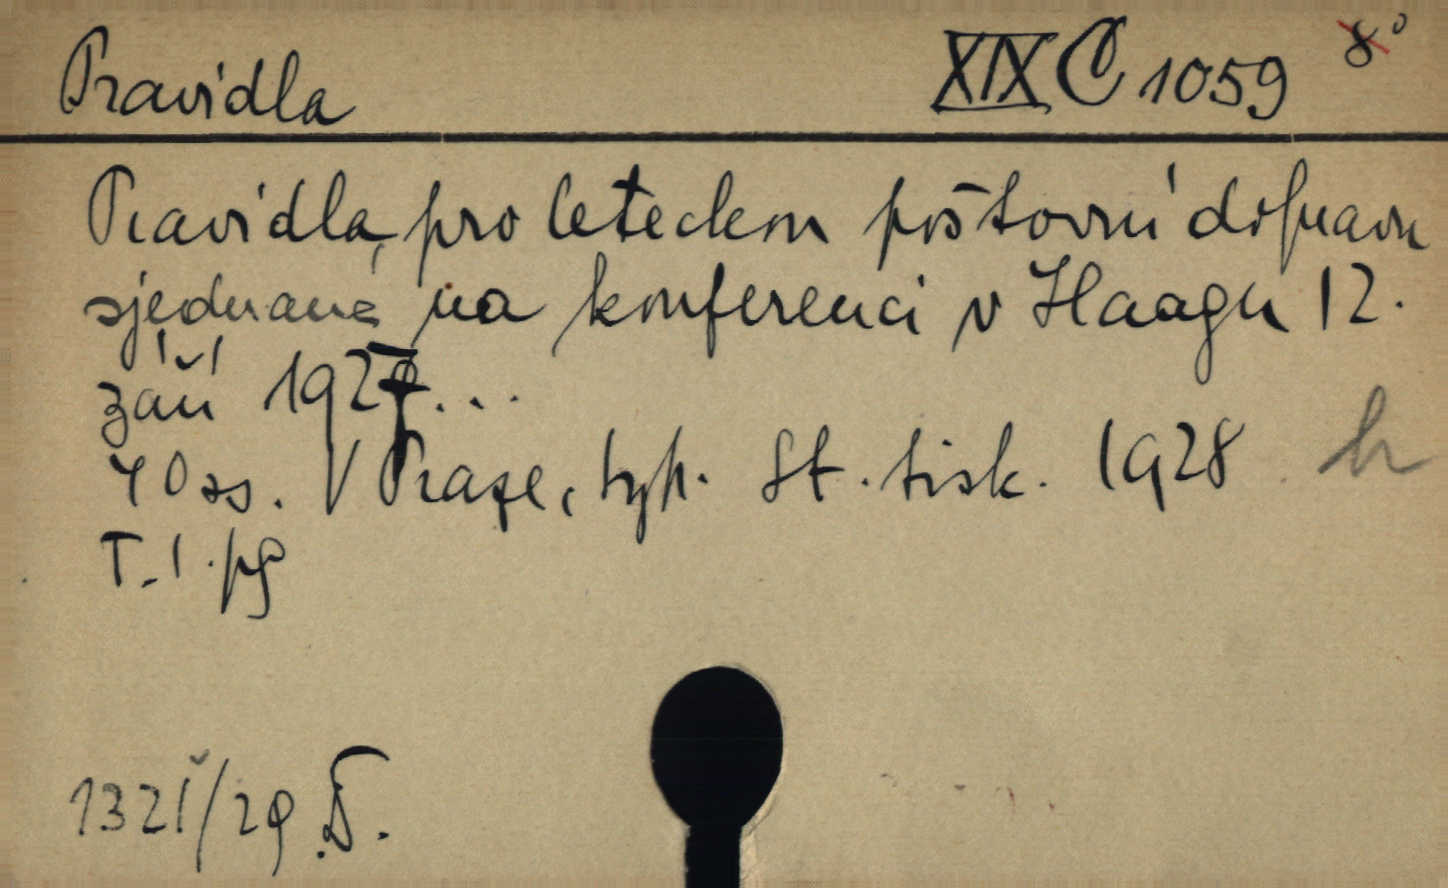 Pravidla XIX C 1059 8°
Pravidla pro leteckou poštovní dopravu
sjednaná na konferenci v Haagu 12.
září 1927...
40 ss. V Praze, typ. St. tisk. 1928
T. 1. pg
1321/29 D.